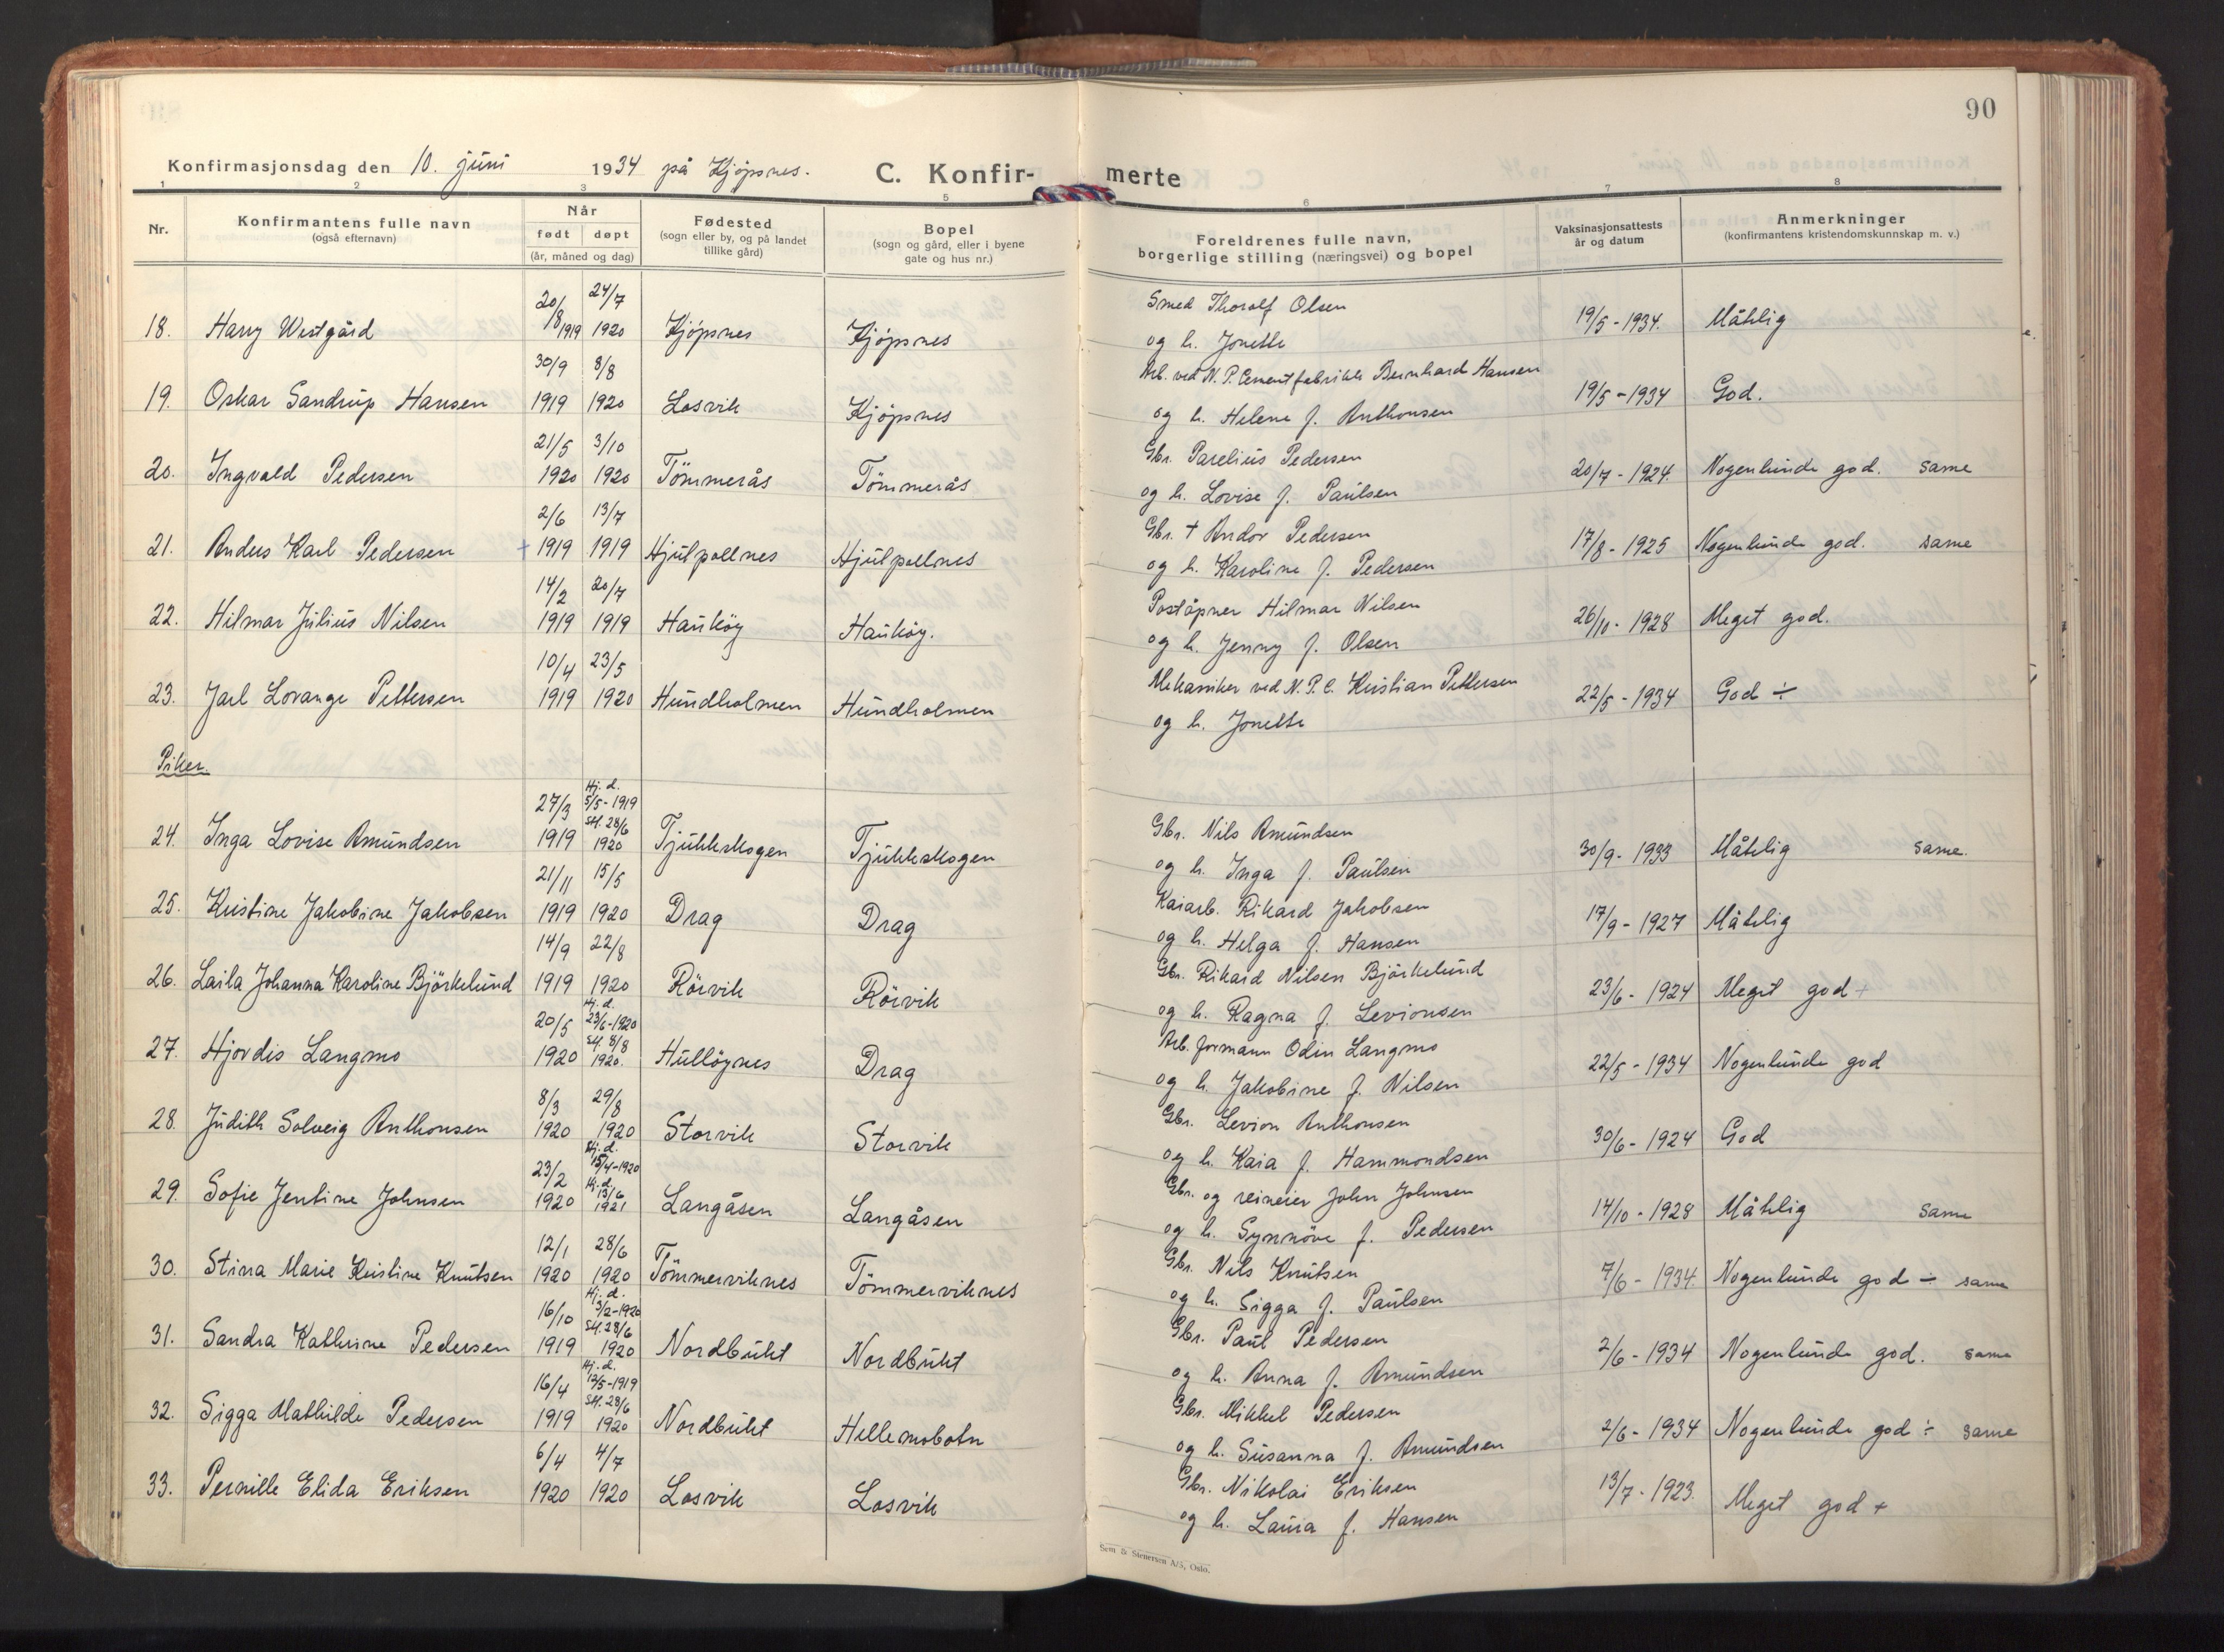 90
Konfirmasjonsdag den 10. juni 1934 på Kjøpsnes. C. Konfir- merte
1 2 3 5 6 7 8
Nr. Konfirmantens fulle navn (også efternavn) Når født døpt (år, måned og dag) Fødested (sogn eller by, og på landet tillike gård) Bopel (sogn og gård, eller i byene gate og hus nr.) Foreldrenes fulle navn, borgerlige stilling (næringsvei) og bopel Vaksinasjonsattests år og datum Anmerkninger (konfirmantens kristendomskunnskap m. v.)
20/8 24/7 Smed Thoralf Olsen
18. Harry Westgård 1919 1920 Kjöpsnes Kjöpsnes og h. Jonette 19/5-1934. Måtelig
30/9 8/8 Arb. ved N.P. Cementfabrikk Bernhard Hansen
19. Oskar Sandrup Hansen 1919 1920 Losvik Kjöpsnes og h. Helene f. Anthonsen 19/5-1934 God.
21/5 3/10 Gbr. Parelius Pedersen
20. Ingvald Pedersen 1920 1920 Tömmerås Tömmerås og h. Lovise f. Paulsen 20/7-1924. Nogenlunde god. same
2/6 13/7 Gbr. + Andor Pedersen
21. Anders Karl Pedersen + 1919 1919 Hjulpollnes Hjulpollnes og h. Karoline f. Pedersen 17/8-1925 Nogenlunde god. same
14/2 20/7 Poståpner Hilmar Nilsen
22. Hilmar Julius Nilsen 1919 1919 Hauköy Hauköy. og h. Jenny f. Olsen 26/10-1928 Meget god.
10/4 23/5 Mekaniker ved N.P.C. Kristian Pettersen
23. Jarl Lorange Pettersen 1919 1920 Hundholmen Hundholmen og h. Jonette 22/5-1934 God ÷
Piker.
27/3 Hj. d. 5/5-1919 St. 28/6 Gbr. Nils Amundsen
24. Inga Lovise Amundsen 1919 1920 Tjukkskogen Tjukkskogen og h. Inga f. Paulsen 30/9-1933 Måtelig same.
21/11 15/5 Kaiarb. Rikard Jakobsen
25. Kristine Jakobine Jakobsen 1919 1920 Drag Drag og h. Helga f. Hansen 17/9-1927 Måtelig
14/9 22/8 Gbr. Rikard Nilsen Björkelund
26. Laila Johanna Karoline Björkelund 1919 1920 Rörvik Rörvik og h. Ragna f. Levionsen 23/6-1924 Meget god +
20/5 Hj. d. 23/6-1920 St. 8/8 Arb. formann Odin Langmo
27. Hjordis Langmo 1920 1920. Hullöynes Drag og h. Jakobine f. Nilsen 22/5-1934 Nogenlunde god
8/3 29/8 Gbr. Levion Anthonsen
28. Judith Solveig Anthonsen 1920 1920 Storvik Storvik og h. Kaia f. Hammondsen 30/6-1924 God
23/2 Hj. d. 15/4-1920 Hj. d. 13/6 Gbr. og reineier John Johnsen
29. Sofie Jentine Johnsen 1920 1921 Langåsen Langåsen og h. Synnöve f. Pedersen 14/10-1928 Måtelig same
12/1 28/6 Gbr. Nils Knutsen
30. Stina Marie Kristine Knutsen 1920 1920 Tömmerviknes Tömmerviknes og h. Sigga f. Paulsen 7/6-1934. Nogenlunde god ÷ same
16/10 Hj. d. 3/2-1920 St. 28/6 Gbr. Paul Pedersen
31. Sandra Kathrine Pedersen 1919 1920 Nordbukt Nordbukt og h. Anna f. Amundsen 2/6-1934 Nogenlunde god. same
16/4 Hj. d. 12/5-1919 St. 28/6 Gbr. Mikkel Pedersen
32. Sigga Mathilde Pedersen 1919 1920 Nordbukt Hellemobotn og h. Susanna f. Amundsen 2/6-1934 Nogenlunde god ÷ same
6/4 4/7 Gbr. Nikolai Eriksen
33. Pernille Elida Eriksen 1920 1920 Losvik Losvik og h. Laura f. Hansen 13/7-1923. Meget god +
Sem & Stenersen A/S, Oslo.